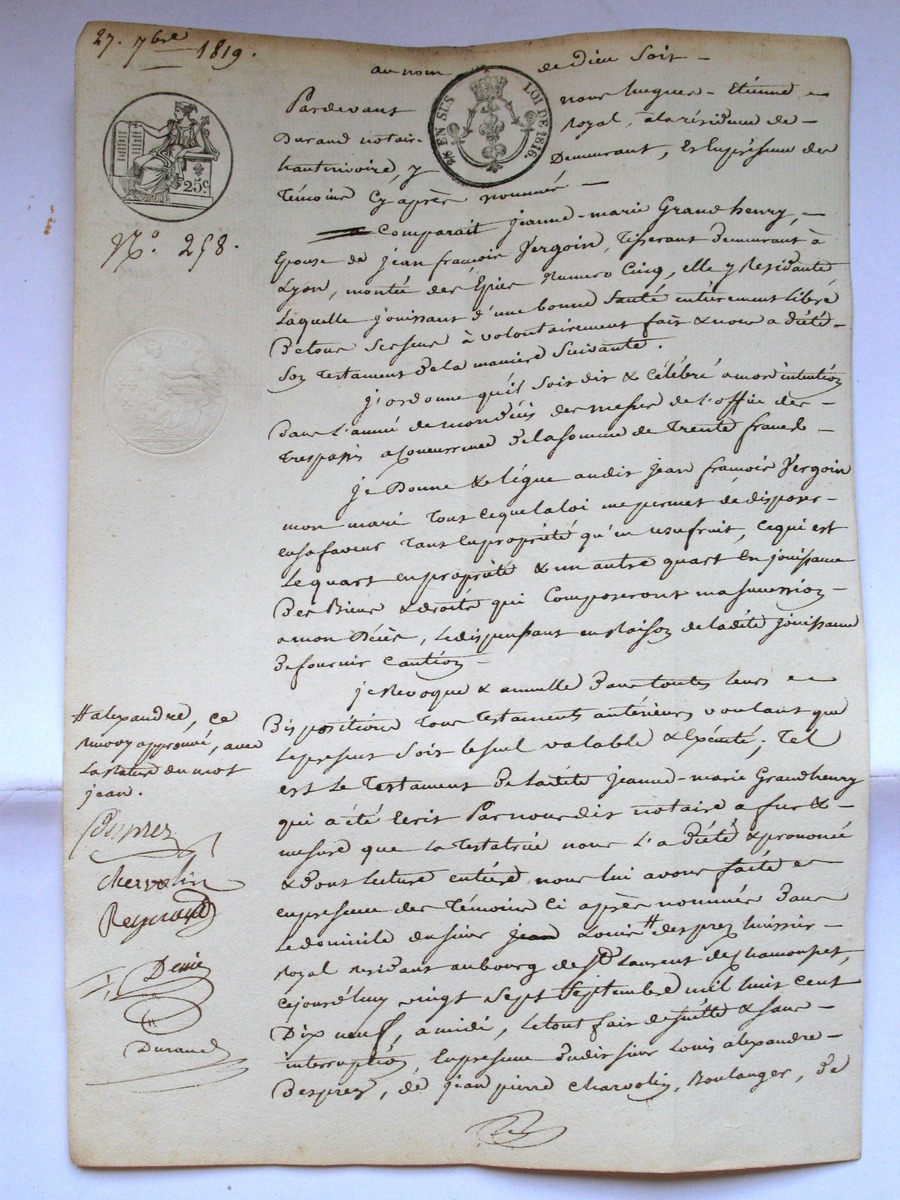 27. 7bre 1819.
au nom de dieu soit
Pardevant nous hugues - Etienne
Durand notaire royal, à la résidence de
hautrivoire, y Demeurant, Es En présence des
Témoins Cy après nommés
Comparait jeanne-marie Grandhenry,
Epouse de jean françois Vergoin, Tisserant Demeurant à
Lyon, montée des Epies Numero Cinq, elle y Residante
Laquelle jouissant d'une bonne Santé entièrement libre
De tous ses sens à volontairement fait & nous a dicté
Son Testament De la manière Suivante.
j'ordonne qu'il soit dit & Célébré a mon intention
Dans l'année de mon décès des messes de l'office des
Trespassés a Concurrence De la somme de Trente francs
je Donne & legue audit jean françois Vergoin
mon mari Tout ce que la loi me permet de disposer
en sa faveur Tant En propriété qu'en usufruit, Ce qui est
Le quart en propriété & un autre quart En jouissance
Des Biens & droits qui Composeront ma succession
a mon Décès, Le dispensant en Raison de ladite jouissance
De fournir Caution
je Revoque & annulle Dans toutes leurs
Dispositions Tous Testaments antérieurs voulant que
Le présent Soit le seul valable & Exécuté; Tel
est Le Testament De ladite jeanne-marie Grandhenry
qui a été Ecrit Par nous dit notaire a fur &
mesure que La Testatrice nous L'a Dicté & prononcé
& dont Lecture entière nous lui avons faite
en présence des Témoins Ci après nommés Dans
Le domicile du sieur jean Louis # desprez huissier
royal residant au bourg de St Laurent de Chamousset,
Cejourd'huy vingt Sept Septembre mil huit Cent
Dix neuf, a midi, Le tout fait de suitte & sans
interruption, En présence dudit sieur Louis alexandre
Desprez, de jean pierre Charvolin, Boulanger, De
25c.
EN SUS LOI DE 1816.
No. 258.
# alexandre, ce
renvoy approuvé, avec
La rature du mot
jean.
Desprez
Chervolin
Reynard
Denis
Durand